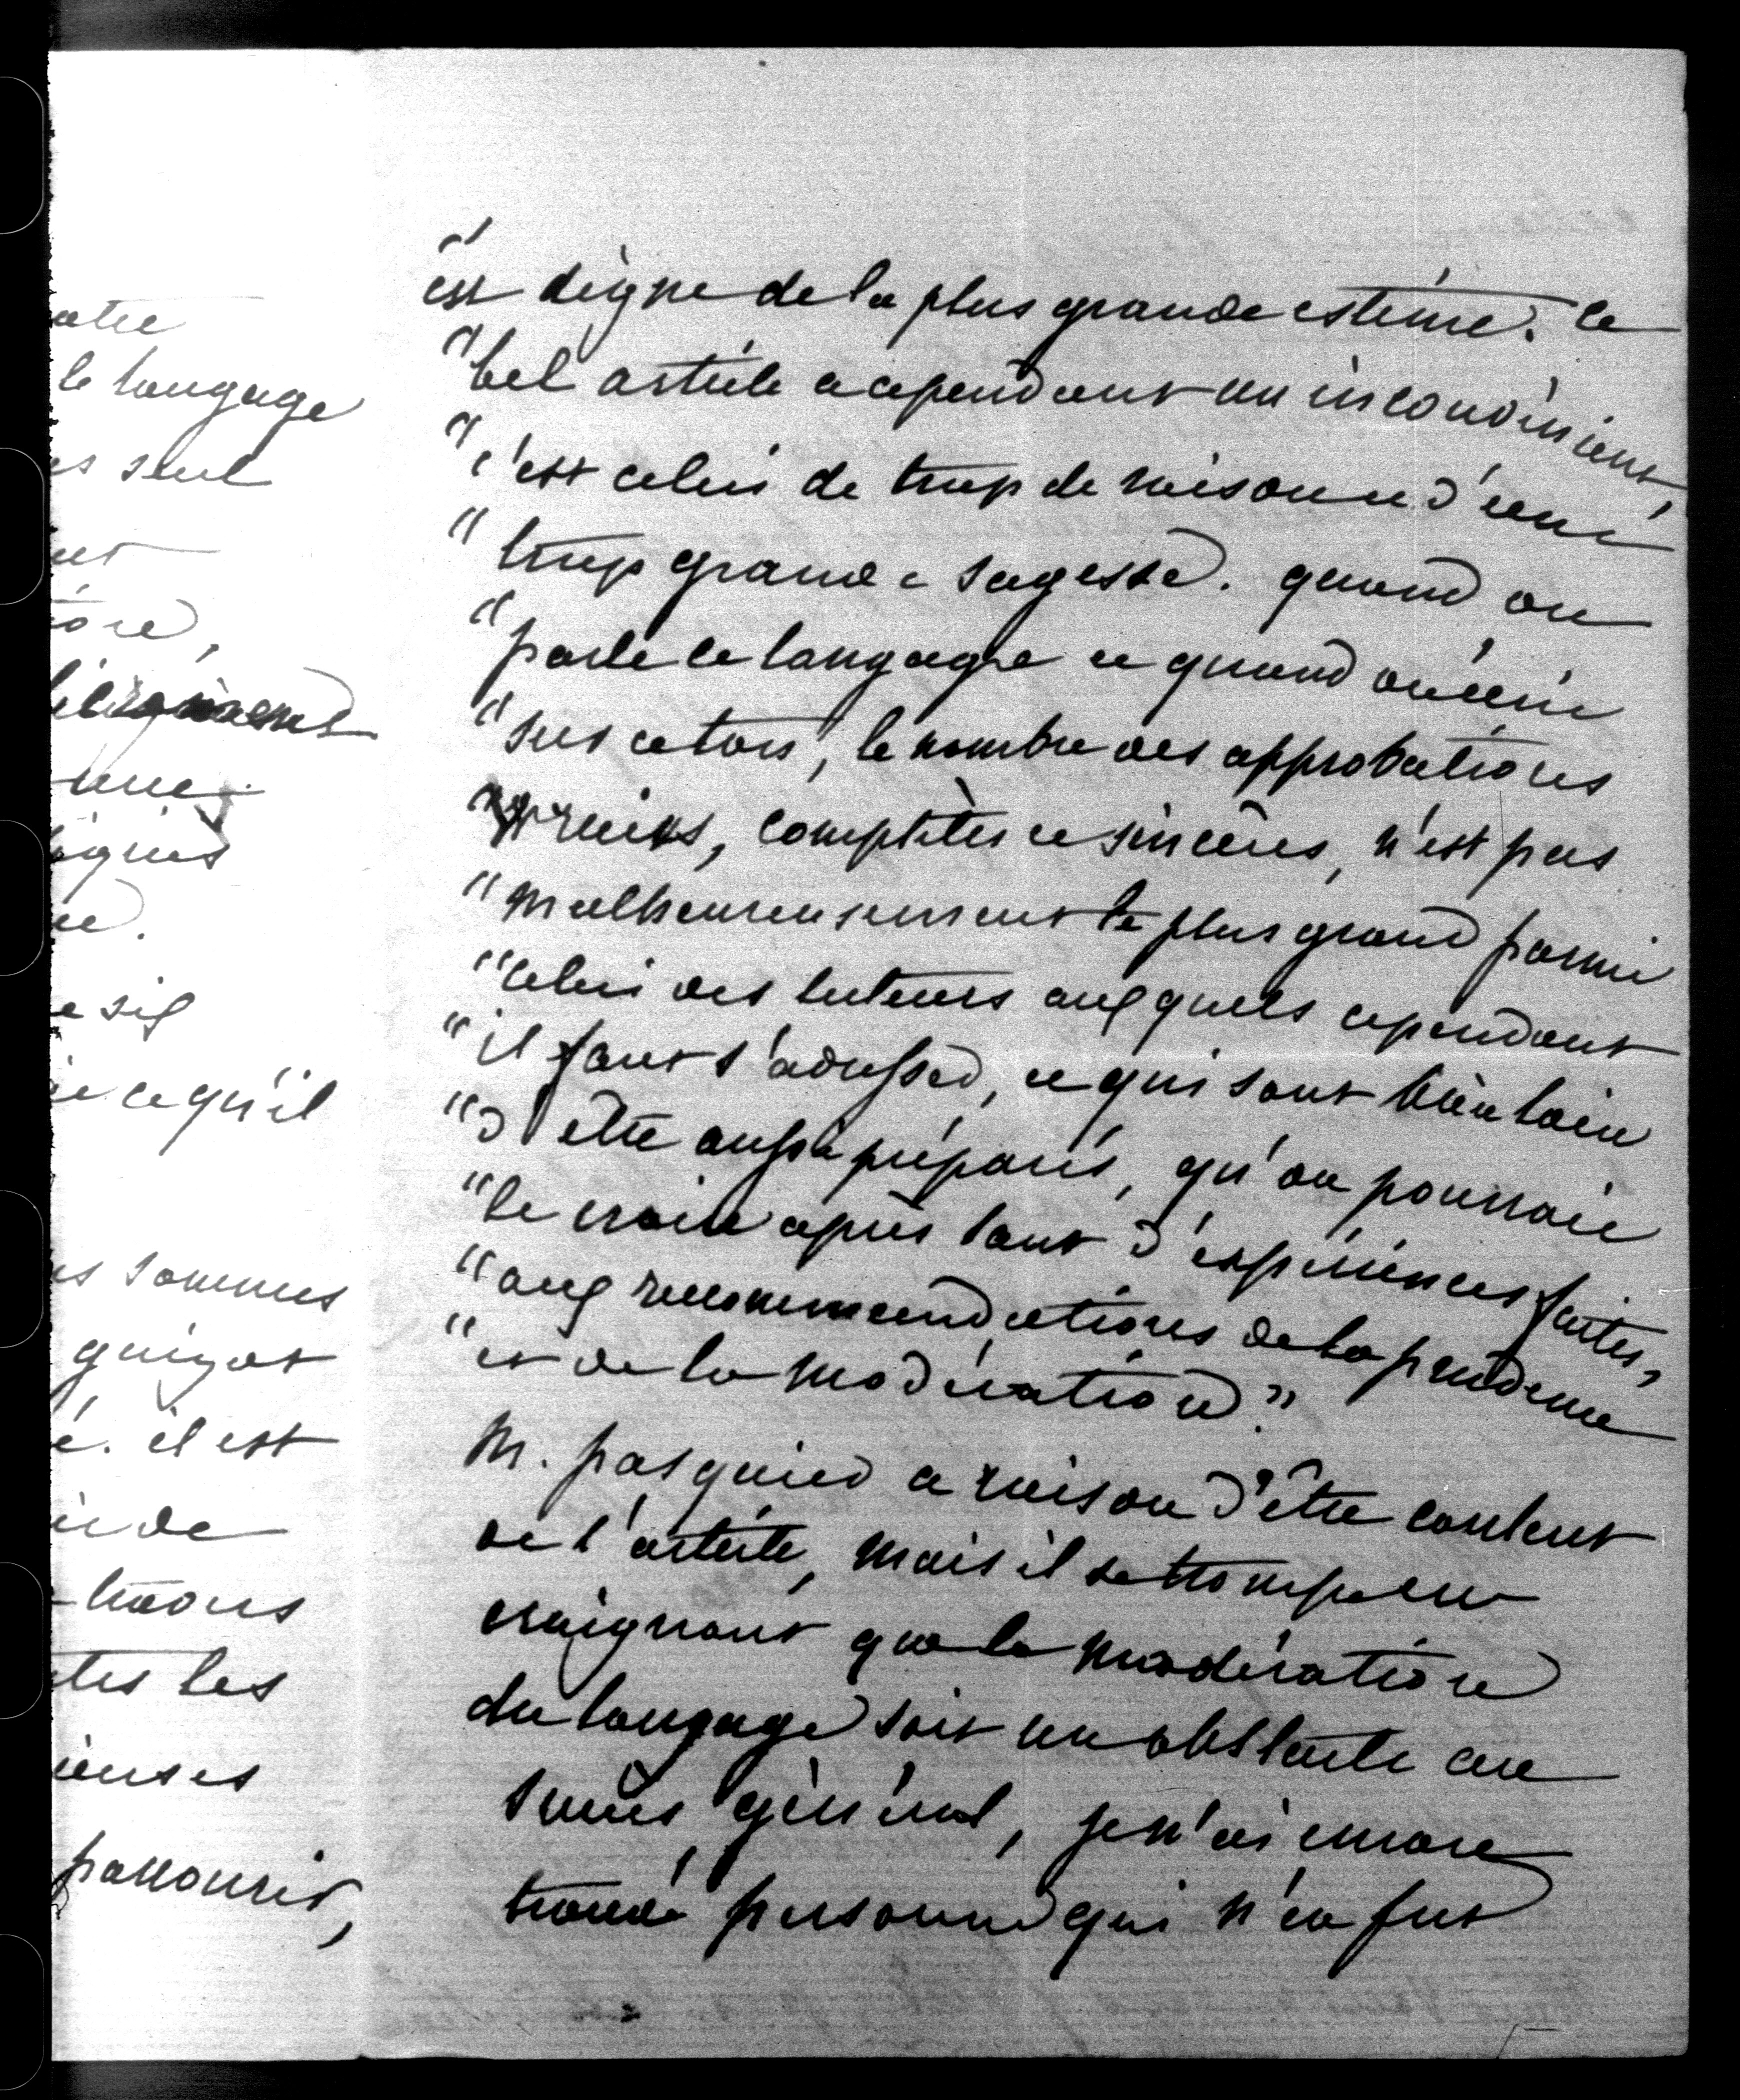 atre
le langage
es seul
ut
ore,
une
ignes
ue.
e sif
ie ce qu'il
es sommes
guizot
é. il est
ii de
tions
tes les
ieuses
parcourir,
"est digne de la plus grande estime. Ce
"bel article a cependant un inconvénient,
"c'est celui de trop de raison et d'une
"trop grande sagesse. quand on
"parle ce langage et quand on écrit
"sur ce ton, le nombre des approbations
"vraies, complètes et sincères, n'est pas
"malheureusement le plus grand parmi
"celui des lecteurs auxquels cependant
"il faut s'adresser, et qui sont bien loin
"d'être aussi préparés, qu'on pourroit
"le croire après tant d'expériences faites,
"aux recommandations de la prudence
"et de la modération."
M. pasquier a raison d'être content
de l'article, mais il se trompe en
craignant que la modération
du langage soit un obstacle au
succès général, je n'ai encore
trouvé personne qui n'en fut